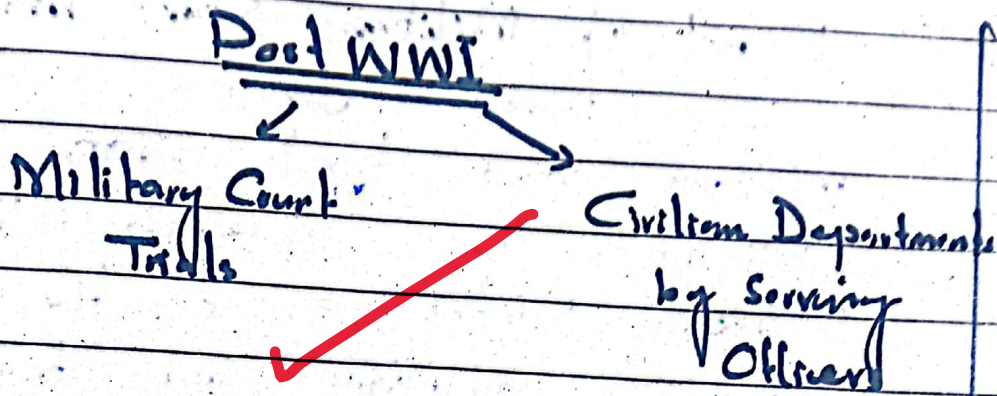 Post WWI
Military Court
Trials
Civilian Departments
by Serving
Officers